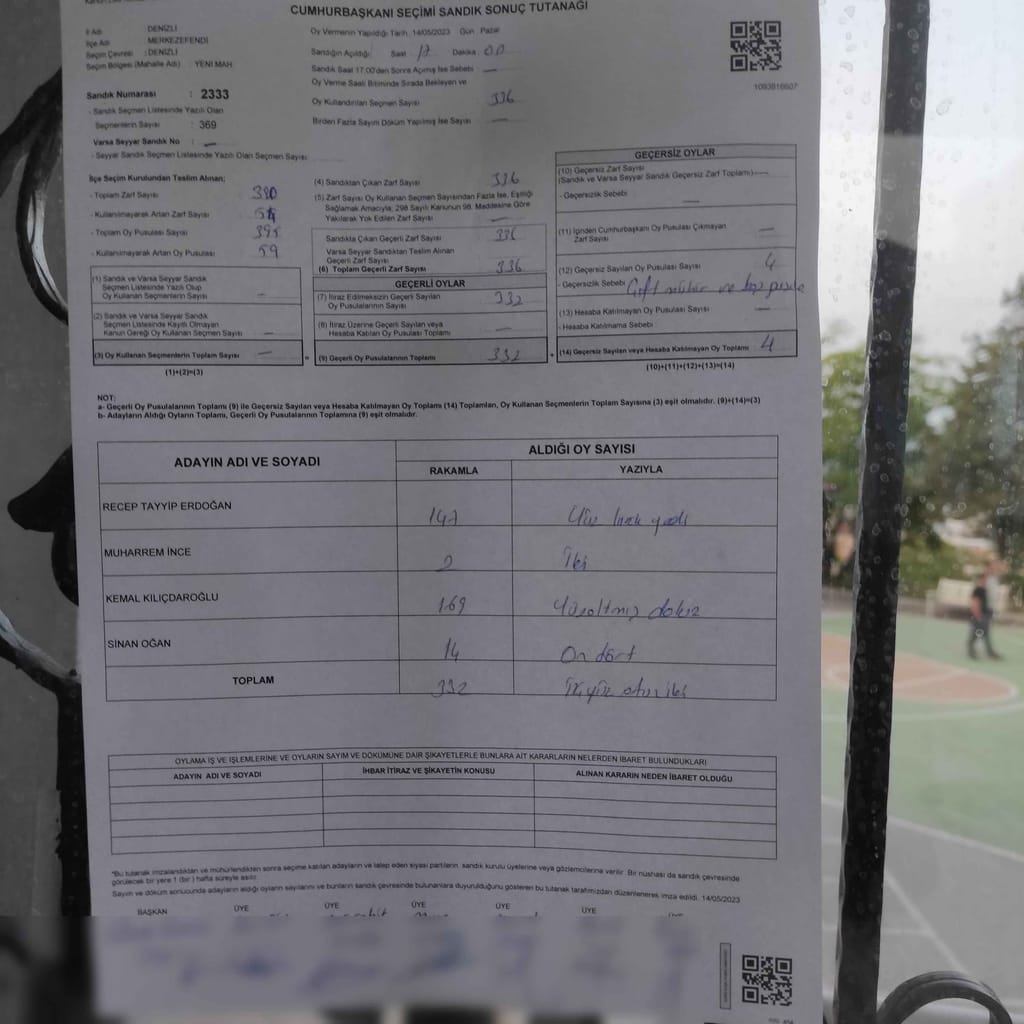 CUMHURBAŞKANI SEÇİMİ SANDIK SONUÇ TUTANAĞI
İl Adı DENİZLİ
İlçe Adı MERKEZEFENDİ
Seçim Çevresi : DENİZLİ
Seçim Bölgesi (Mahalle Adı) : YENİ MAH
Oy Vermenin Yapıldığı Tarih: 14/05/2023 Gün Pazar
Sandığın Açıldığı: Saat 17 Dakika 00
Sandık Saat 17:00'den Sonra Açılmış İse Sebebi —
Oy Verme Saati Bitiminde Sırada Bekleyen ve
Oy Kullandırılan Seçmen Sayısı 336
Birden Fazla Sayım Döküm Yapılmış İse Sayısı —
1093816607
Sandık Numarası : 2333
- Sandık Seçmen Listesinde Yazılı Olan
Seçmenlerin Sayısı : 369
Varsa Seyyar Sandık No : —
- Seyyar Sandık Seçmen Listesinde Yazılı Olan Seçmen Sayısı
İlçe Seçim Kurulundan Teslim Alınan;
- Toplam Zarf Sayısı
- Kullanılmayarak Artan Zarf Sayısı
- Toplam Oy Pusulası Sayısı 395
- Kullanılmayarak Artan Oy Pusulası 59
(1) Sandık ve Varsa Seyyar Sandık
Seçmen Listesinde Yazılı Olup
Oy Kullanan Seçmenlerin Sayısı —
(2) Sandık ve Varsa Seyyar Sandık
Seçmen Listesinde Kayıtlı Olmayan
Kanun Gereği Oy Kullanan Seçmen Sayısı —
(3) Oy Kullanan Seçmenlerin Toplam Sayısı —
(1)+(2)=(3)
(4) Sandıktan Çıkan Zarf Sayısı 336
(5) Zarf Sayısı Oy Kullanan Seçmen Sayısından Fazla İse, Eşitliği
Sağlamak Amacıyla; 298 Sayılı Kanunun 98. Maddesine Göre
Yakılarak Yok Edilen Zarf Sayısı —
Sandıkta Çıkan Geçerli Zarf Sayısı 336
Varsa Seyyar Sandıktan Teslim Alınan
Geçerli Zarf Sayısı
(6) Toplam Geçerli Zarf Sayısı 336
GEÇERLİ OYLAR
(7) İtiraz Edilmeksizin Geçerli Sayılan
Oy Pusulalarının Sayısı 332
(8) İtiraz Üzerine Geçerli Sayılan veya
Hesaba Katılan Oy Pusulası Toplamı —
= (9) Geçerli Oy Pusulalarının Toplamı 332
GEÇERSİZ OYLAR
(10) Geçersiz Zarf Sayısı
(Sandık ve Varsa Seyyar Sandık Geçersiz Zarf Toplamı) —
- Geçersizlik Sebebi —
(11) İçinden Cumhurbaşkanı Oy Pusulası Çıkmayan
Zarf Sayısı —
(12) Geçersiz Sayılan Oy Pusulası Sayısı 4
- Geçersizlik Sebebi Çift mühür ve boş pusula
(13) Hesaba Katılmayan Oy Pusulası Sayısı —
- Hesaba Katılmama Sebebi
+ (14) Geçersiz Sayılan veya Hesaba Katılmayan Oy Toplamı 4
(10)+(11)+(12)+(13)=(14)
NOT:
a- Geçerli Oy Pusulalarının Toplamı (9) ile Geçersiz Sayılan veya Hesaba Katılmayan Oy Toplamı (14) Toplamları, Oy Kullanan Seçmenlerin Toplam Sayısına (3) eşit olmalıdır. (9)+(14)=(3)
b- Adayların Aldığı Oyların Toplamı, Geçerli Oy Pusulalarının Toplamına (9) eşit olmalıdır.
ADAYIN ADI VE SOYADI ALDIĞI OY SAYISI
RAKAMLA YAZIYLA
RECEP TAYYİP ERDOĞAN 147 Yüz kırk yedi
MUHARREM İNCE 2 İki
KEMAL KILIÇDAROĞLU 169 Yüzaltmış dokuz
SİNAN OĞAN 14 On dört
TOPLAM 332 otuz iki
OYLAMA İŞ VE İŞLEMLERİNE VE OYLARIN SAYIM VE DÖKÜMÜNE DAİR ŞİKAYETLERLE BUNLARA AİT KARARLARIN NELERDEN İBARET BULUNDUKLARI
ADAYIN ADI VE SOYADI İHBAR İTİRAZ VE ŞİKAYETİN KONUSU ALINAN KARARIN NEDEN İBARET OLDUĞU
*Bu tutanak imzalandıktan ve mühürlendikten sonra seçime katılan adayların ve talep eden siyasi partilerin, sandık kurulu üyelerine veya gözlemcilerine verilir. Bir nüshası da sandık çevresinde
görülecek bir yere 1 (bir) hafta süreyle asılır.
Sayım ve döküm sonucunda adayların aldığı oyların sayılarını ve bunların sandık çevresinde bulunanlara duyurulduğunu gösteren bu tutanak tarafımızdan düzenlenerek imza edildi. 14/05/2023
BAŞKAN ÜYE ÜYE ÜYE ÜYE ÜYE ÜYE